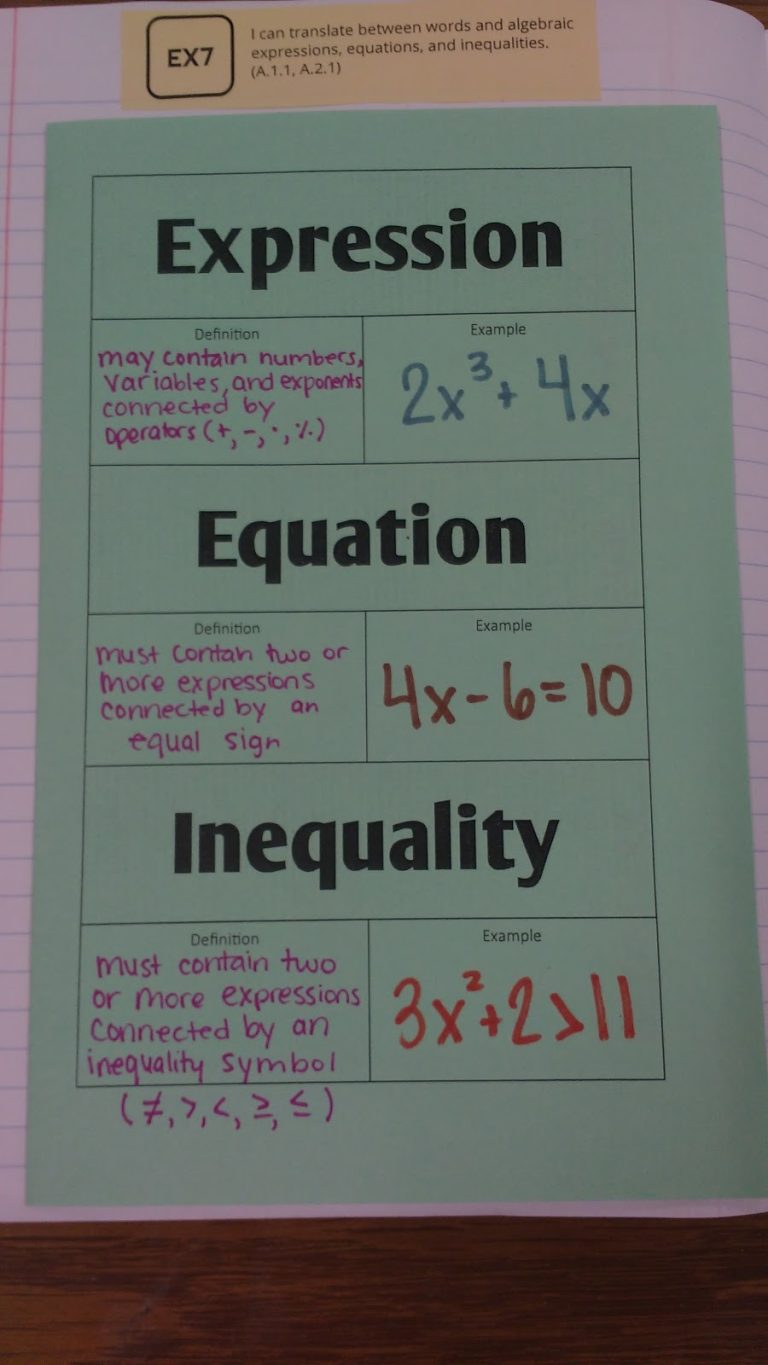 EX7
I can translate between words and algebraic
expressions, equations, and inequalities.
(A.1.1, A.2.1)
Expression
Definition
may contain numbers,
variables, and exponents
connected by
operators (+, -, ·, ٪)
Example
2x³ + 4x
Equation
Definition
must contan two or
more expressions
connected by an
equal sign
Example
4x - 6 = 10
Inequality
Definition
must contain two
or more expressions
connected by an
inequality symbol
(≠, >, <, ≥, ≤)
Example
3x² + 2 > 11